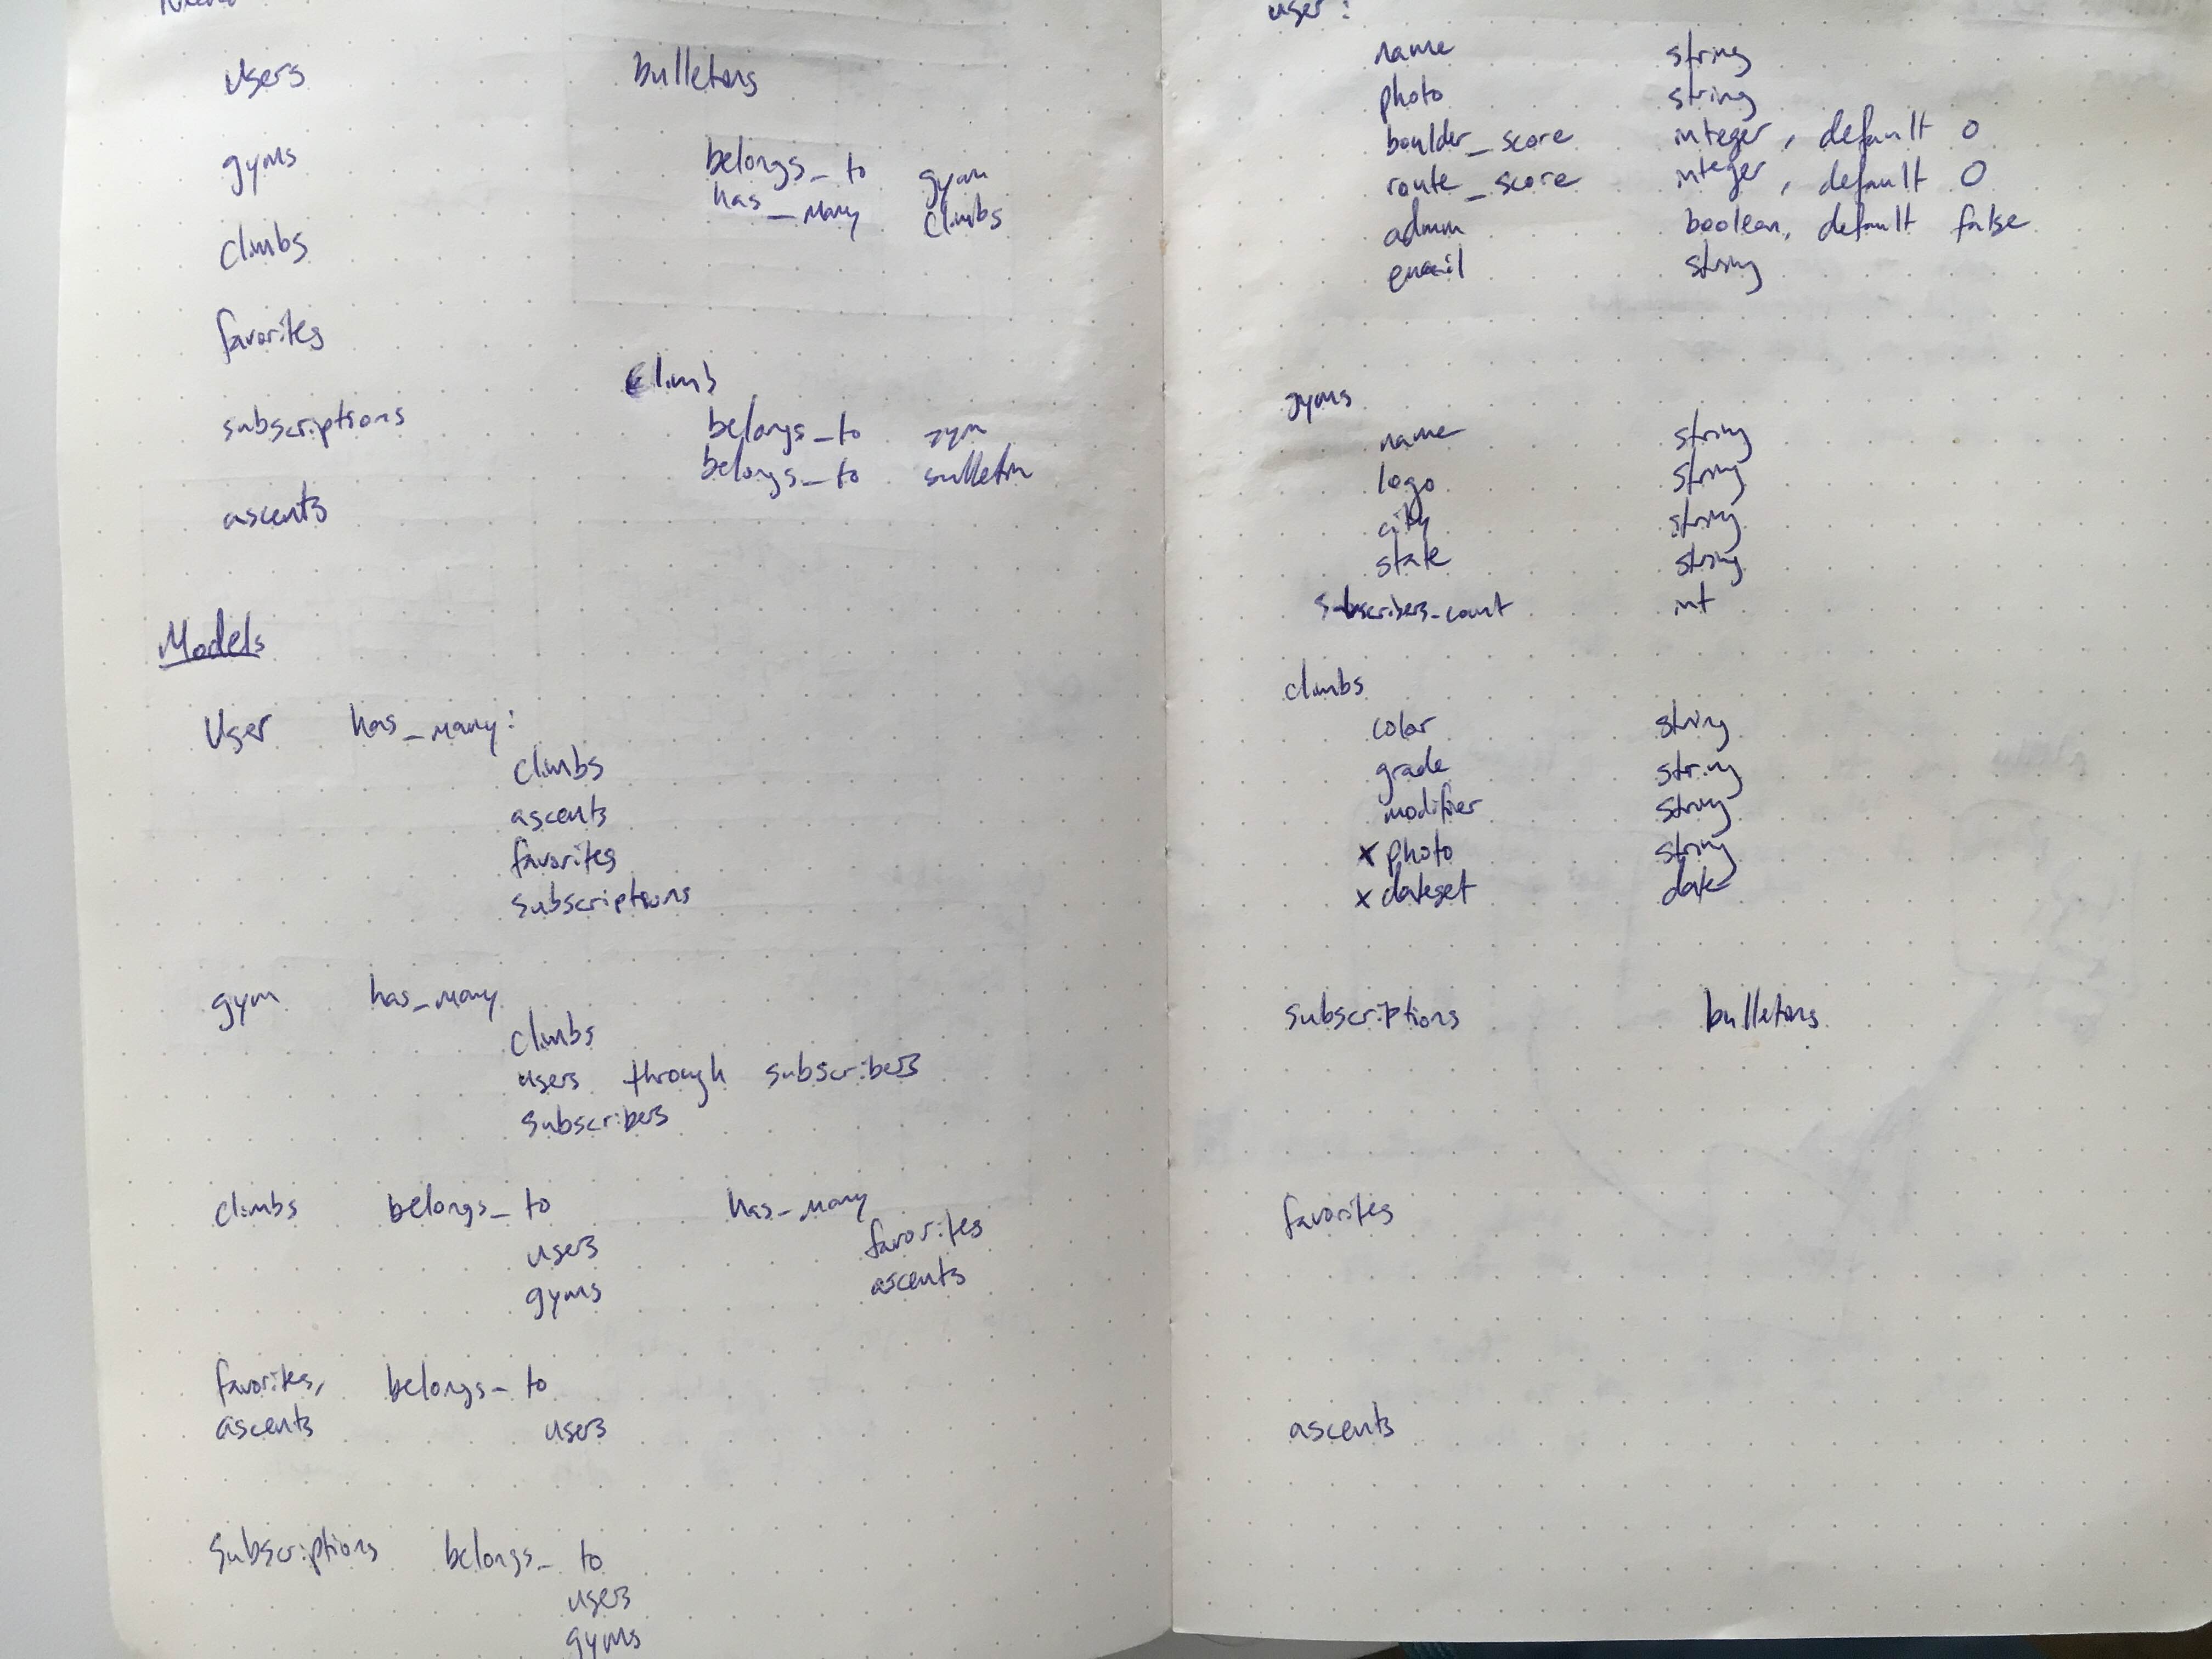 Users
gyms
climbs
favorites
subscriptions
ascents
bulletins
belongs_to gym
has_many climbs
Climb
belongs_to gym
belongs_to bulletin
Models
User has_many:
climbs
ascents
favorites
subscriptions
gym has_many
climbs
users through subscribers
subscribers
climbs belongs_to has_many
users favorites
gyms ascents
favorites, belongs_to
ascents users
Subscriptions belongs_to
users
gyms
user:
name string
photo string
boulder_score integer, default 0
route_score integer, default 0
admin boolean, default false
email string
gyms
name string
logo string
city string
state string
subscribers_count int
climbs
color string
grade string
modifier string
x photo string
x dateset date
subscriptions bulletins
favorites
ascents